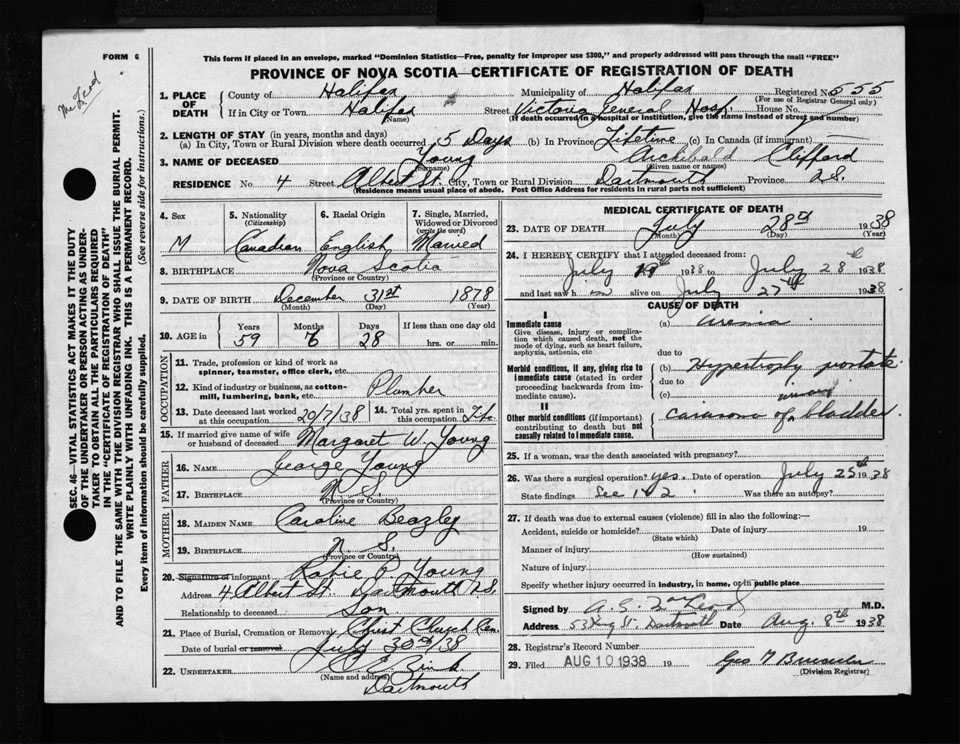 FORM 6
This form if placed in an envelope, marked "Dominion Statistics—Free, penalty for improper use $300," and properly addressed will pass through the mail "FREE"
PROVINCE OF NOVA SCOTIA—CERTIFICATE OF REGISTRATION OF DEATH
1. PLACE OF DEATH
County of Halifax Municipality of Halifax Registered No. 555
(For use of Registrar General only)
If in City or Town Halifax Street Victoria General Hosp. House No.
(Name) (If death occurred in a hospital or institution, give the name instead of street and number)
2. LENGTH OF STAY (in years, months and days)
(a) In City, Town or Rural Division where death occurred 5 Days (b) In Province Lifetime (c) In Canada (if immigrant)
3. NAME OF DECEASED Young Archibald Clifford
(Surname) (Given name or names)
RESIDENCE No. 4 Street Albert St. City, Town or Rural Division Dartmouth Province N.S.
(Residence means usual place of abode. Post Office Address for residents in rural parts not sufficient)
4. Sex 5. Nationality (Citizenship) 6. Racial Origin 7. Single, Married, Widowed or Divorced (write the word)
M Canadian English Married
8. BIRTHPLACE Nova Scotia
(Province or Country)
9. DATE OF BIRTH December 31st 1878
(Month) (Day) (Year)
10. AGE in Years Months Days If less than one day old
59 6 28 hrs. or min.
OCCUPATION
11. Trade, profession or kind of work as spinner, teamster, office clerk, etc.
12. Kind of industry or business, as cotton-mill, lumbering, bank, etc. Plumber
13. Date deceased last worked at this occupation 20/7/38 14. Total yrs. spent in this occupation Life
15. If married give name of wife or husband of deceased Margaret W. Young
FATHER
16. NAME George Young
17. BIRTHPLACE N.S.
(Province or Country)
MOTHER
18. MAIDEN NAME Caroline Beazley
19. BIRTHPLACE N.S.
(Province or Country)
20. Signature of informant P. Young
Address 4 Albert St. Dartmouth N.S.
Relationship to deceased Son
21. Place of Burial, Cremation or Removal Christ Church Cem.
Date of burial or removal July 30th/38
22. UNDERTAKER Zink
(Name and address)
Dartmouth
MEDICAL CERTIFICATE OF DEATH
23. DATE OF DEATH July 28th 1938
(Month) (Day) (Year)
24. I HEREBY CERTIFY that I attended deceased from:
July 1938 to July 28th 1938
and last saw him alive on July 27th 1938
CAUSE OF DEATH
I
Immediate cause (a) uremia
Give disease, injury or complication which caused death, not the mode of dying, such as heart failure, asphyxia, asthenia, etc
due to
Morbid conditions, if any, giving rise to immediate cause (stated in order proceeding backwards from immediate cause).
(b) Hypertrophy prostate
due to
(c)
II
Other morbid conditions (if important) contributing to death but not causally related to immediate cause.
carcinoma of bladder
25. If a woman, was the death associated with pregnancy?
26. Was there a surgical operation? yes. Date of operation July 25th 1938
State findings See 1 & 2 Was there an autopsy?
27. If death was due to external causes (violence) fill in also the following:—
Accident, suicide or homicide? Date of injury 19
(State which)
Manner of injury
(How sustained)
Nature of injury
Specify whether injury occurred in industry, in home, or in public place
Signed by A. G. M.D.
Address 53 King St. Dartmouth Date Aug. 8th 1938
28. Registrar's Record Number
29. Filed AUG 10 1938 19 Geo
(Division Registrar)
SEC. 46—VITAL STATISTICS ACT MAKES IT THE DUTY
OF THE UNDERTAKER OR PERSON ACTING AS UNDER-
TAKER TO OBTAIN ALL THE PARTICULARS REQUIRED
IN THE "CERTIFICATE OF REGISTRATION OF DEATH"
AND TO FILE THE SAME WITH THE DIVISION REGISTRAR WHO SHALL ISSUE THE BURIAL PERMIT.
WRITE PLAINLY WITH UNFADING INK. THIS IS A PERMANENT RECORD.
Every item of information should be carefully supplied. (See reverse side for instructions.)